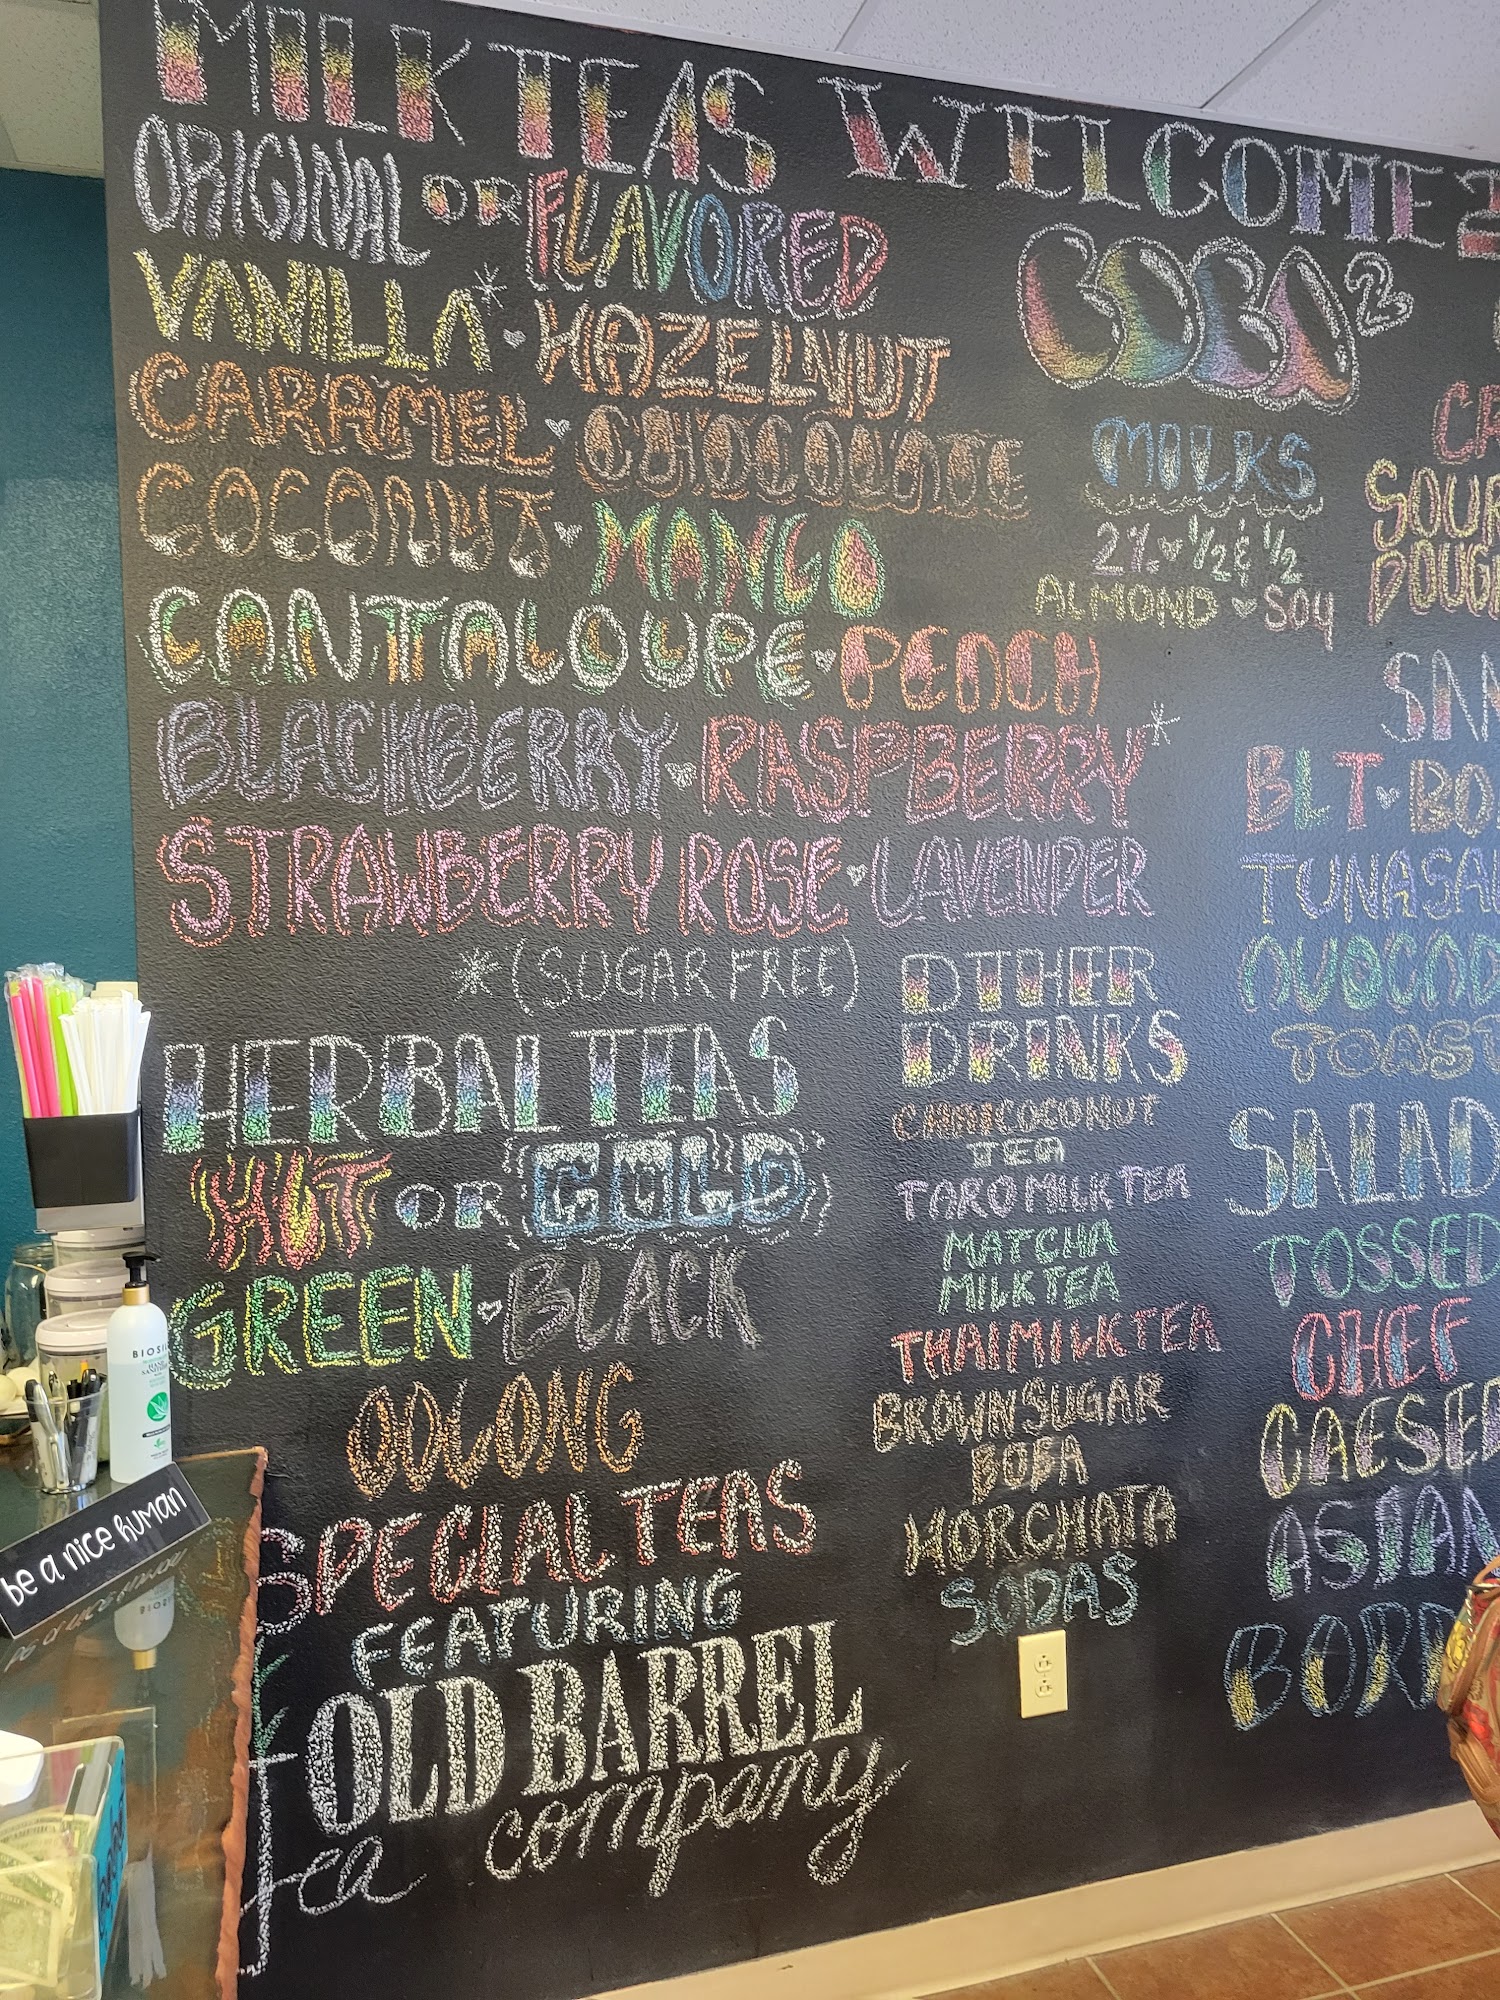 MILK TEAS
ORIGINAL OR FLAVORED
VANILLA* HAZELNUT
CARAMEL CHOCOLATE
COCONUT MANGO
CANTALOUPE PEACH
BLACKBERRY RASPBERRY*
STRAWBERRY ROSE LAVENDER
*(SUGAR FREE)
HERBAL TEAS
HOT OR COLD
GREEN BLACK
OOLONG
SPECIAL TEAS
FEATURING
OLD BARREL
tea company
WELCOME
MILKS
2% 1/2 & 1/2
ALMOND SOY
OTHER
DRINKS
CHAI COCONUT
TEA
TARO MILK TEA
MATCHA
MILK TEA
THAI MILK TEA
BROWN SUGAR
BOBA
HORCHATA
SODAS
SOUR
DOUG
SAN
BLT BO
TUNA SAL
AVOCAD
TOAST
SALAD
TOSSED
CHEF
CAESE
ASIAN
BORD
BIOSIL
HAND
SANITIZER
be a nice human